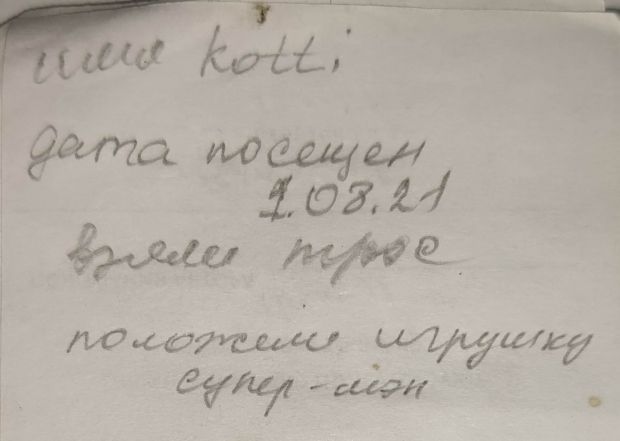 имя kotti
дата посещен
1.08.21
взяли трос
положели игрушку
супер-мэн